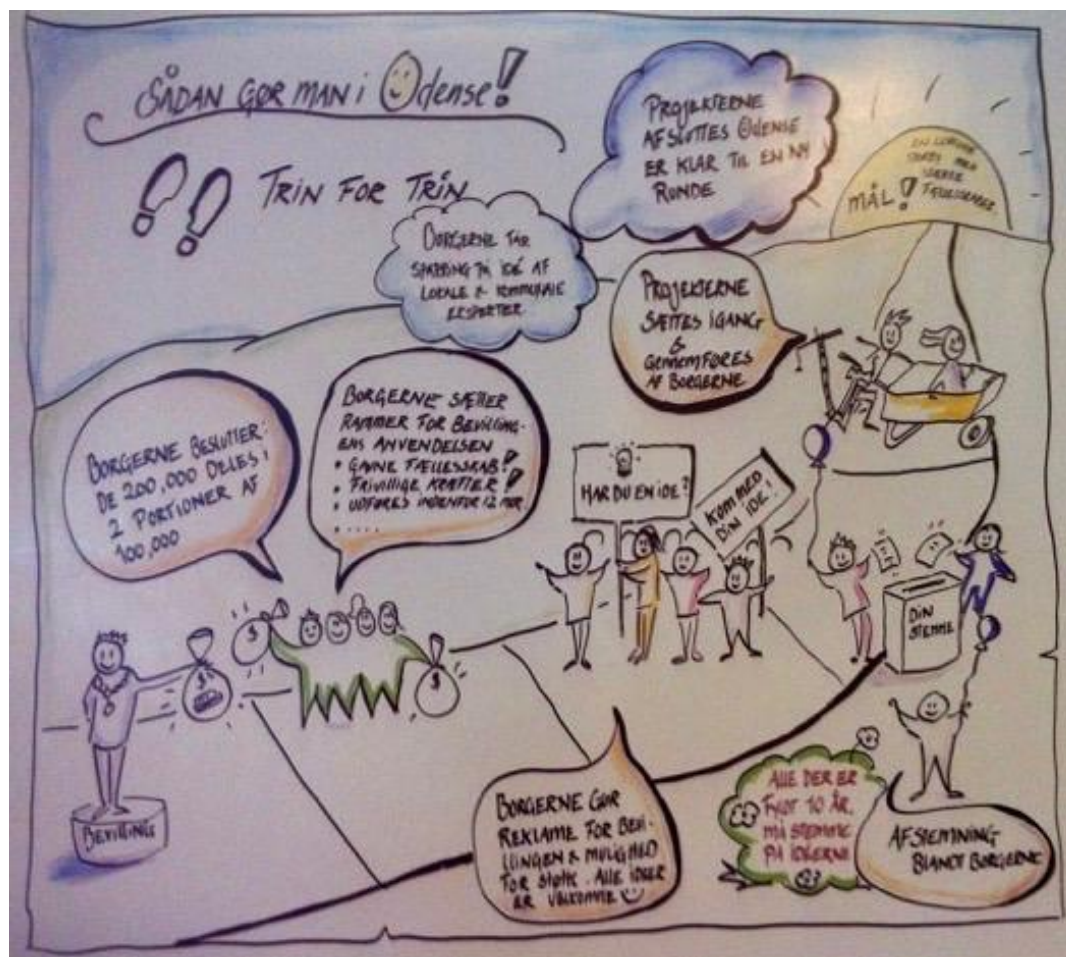 SÅDAN GØR MAN i Odense!
TRIN FOR TRIN
PROJEKTERNE
AFSLUTTES Odense
ER KLAR TIL EN NY
RUNDE
BORGERNE FÅR
SPARRING PÅ IDÉ AF
LOKALE & KOMMUNALE
EKSPERTER.
MÅL!
EN
MED
FÆLLESSKABER.
PROJEKTERNE
SÆTTES IGANG
&
GENNEMFØRES
AF BORGERNE
BORGERNE BESLUTTER:
DE 200,000 DELES i
2 PORTIONER AF
100,000
BORGERNE SÆTTER
RAMMER FOR BEVILLING-
ENS ANVENDELSEN
• GAVNE FÆLLESSKAB!
• FRIVILLIGE KRÆFTER!
• UDFØRES INDENFOR 12 MDR.
• . . . .
HAR DU EN IDE?
KOM MED
DIN IDE!
DIN
STEMME
$
$
$
BEVILLING
BORGERNE GØR
REKLAME FOR BEVIL-
LINGEN & MULIGHED
FOR STØTTE. ALLE IDEER
ER VELKOMNE
ALLE DER ER
FYLDT 10 ÅR.
MÅ STEMME
PÅ IDEERNE
AFSTEMNING
BLANDT BORGERNE